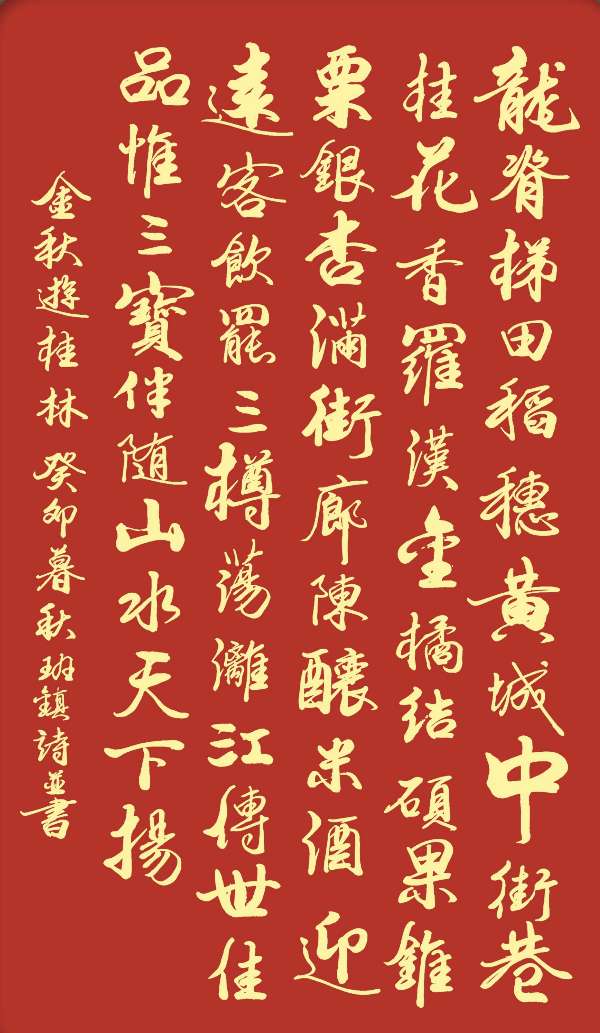 龍脊梯田稻穗黃城中街巷
桂花香羅漢金橘結碩果錐
栗銀杏滿街廊陳釀米酒迎
遠客飲罷三樽蕩灕江傳世佳
品惟三寶伴随山水天下揚
金秋遊桂林 癸卯暮秋 班鎮詩並書